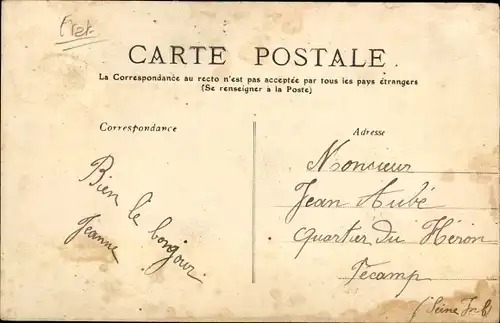 CARTE POSTALE.
La Correspondance au recto n'est pas acceptée par tous les pays étrangers
(Se renseigner à la Poste)
Correspondance
Adresse
Bien le bonjour
Jeanne
Monsieur
Jean Aubé
Quartier du Héron
Fécamp
(Seine Inf)